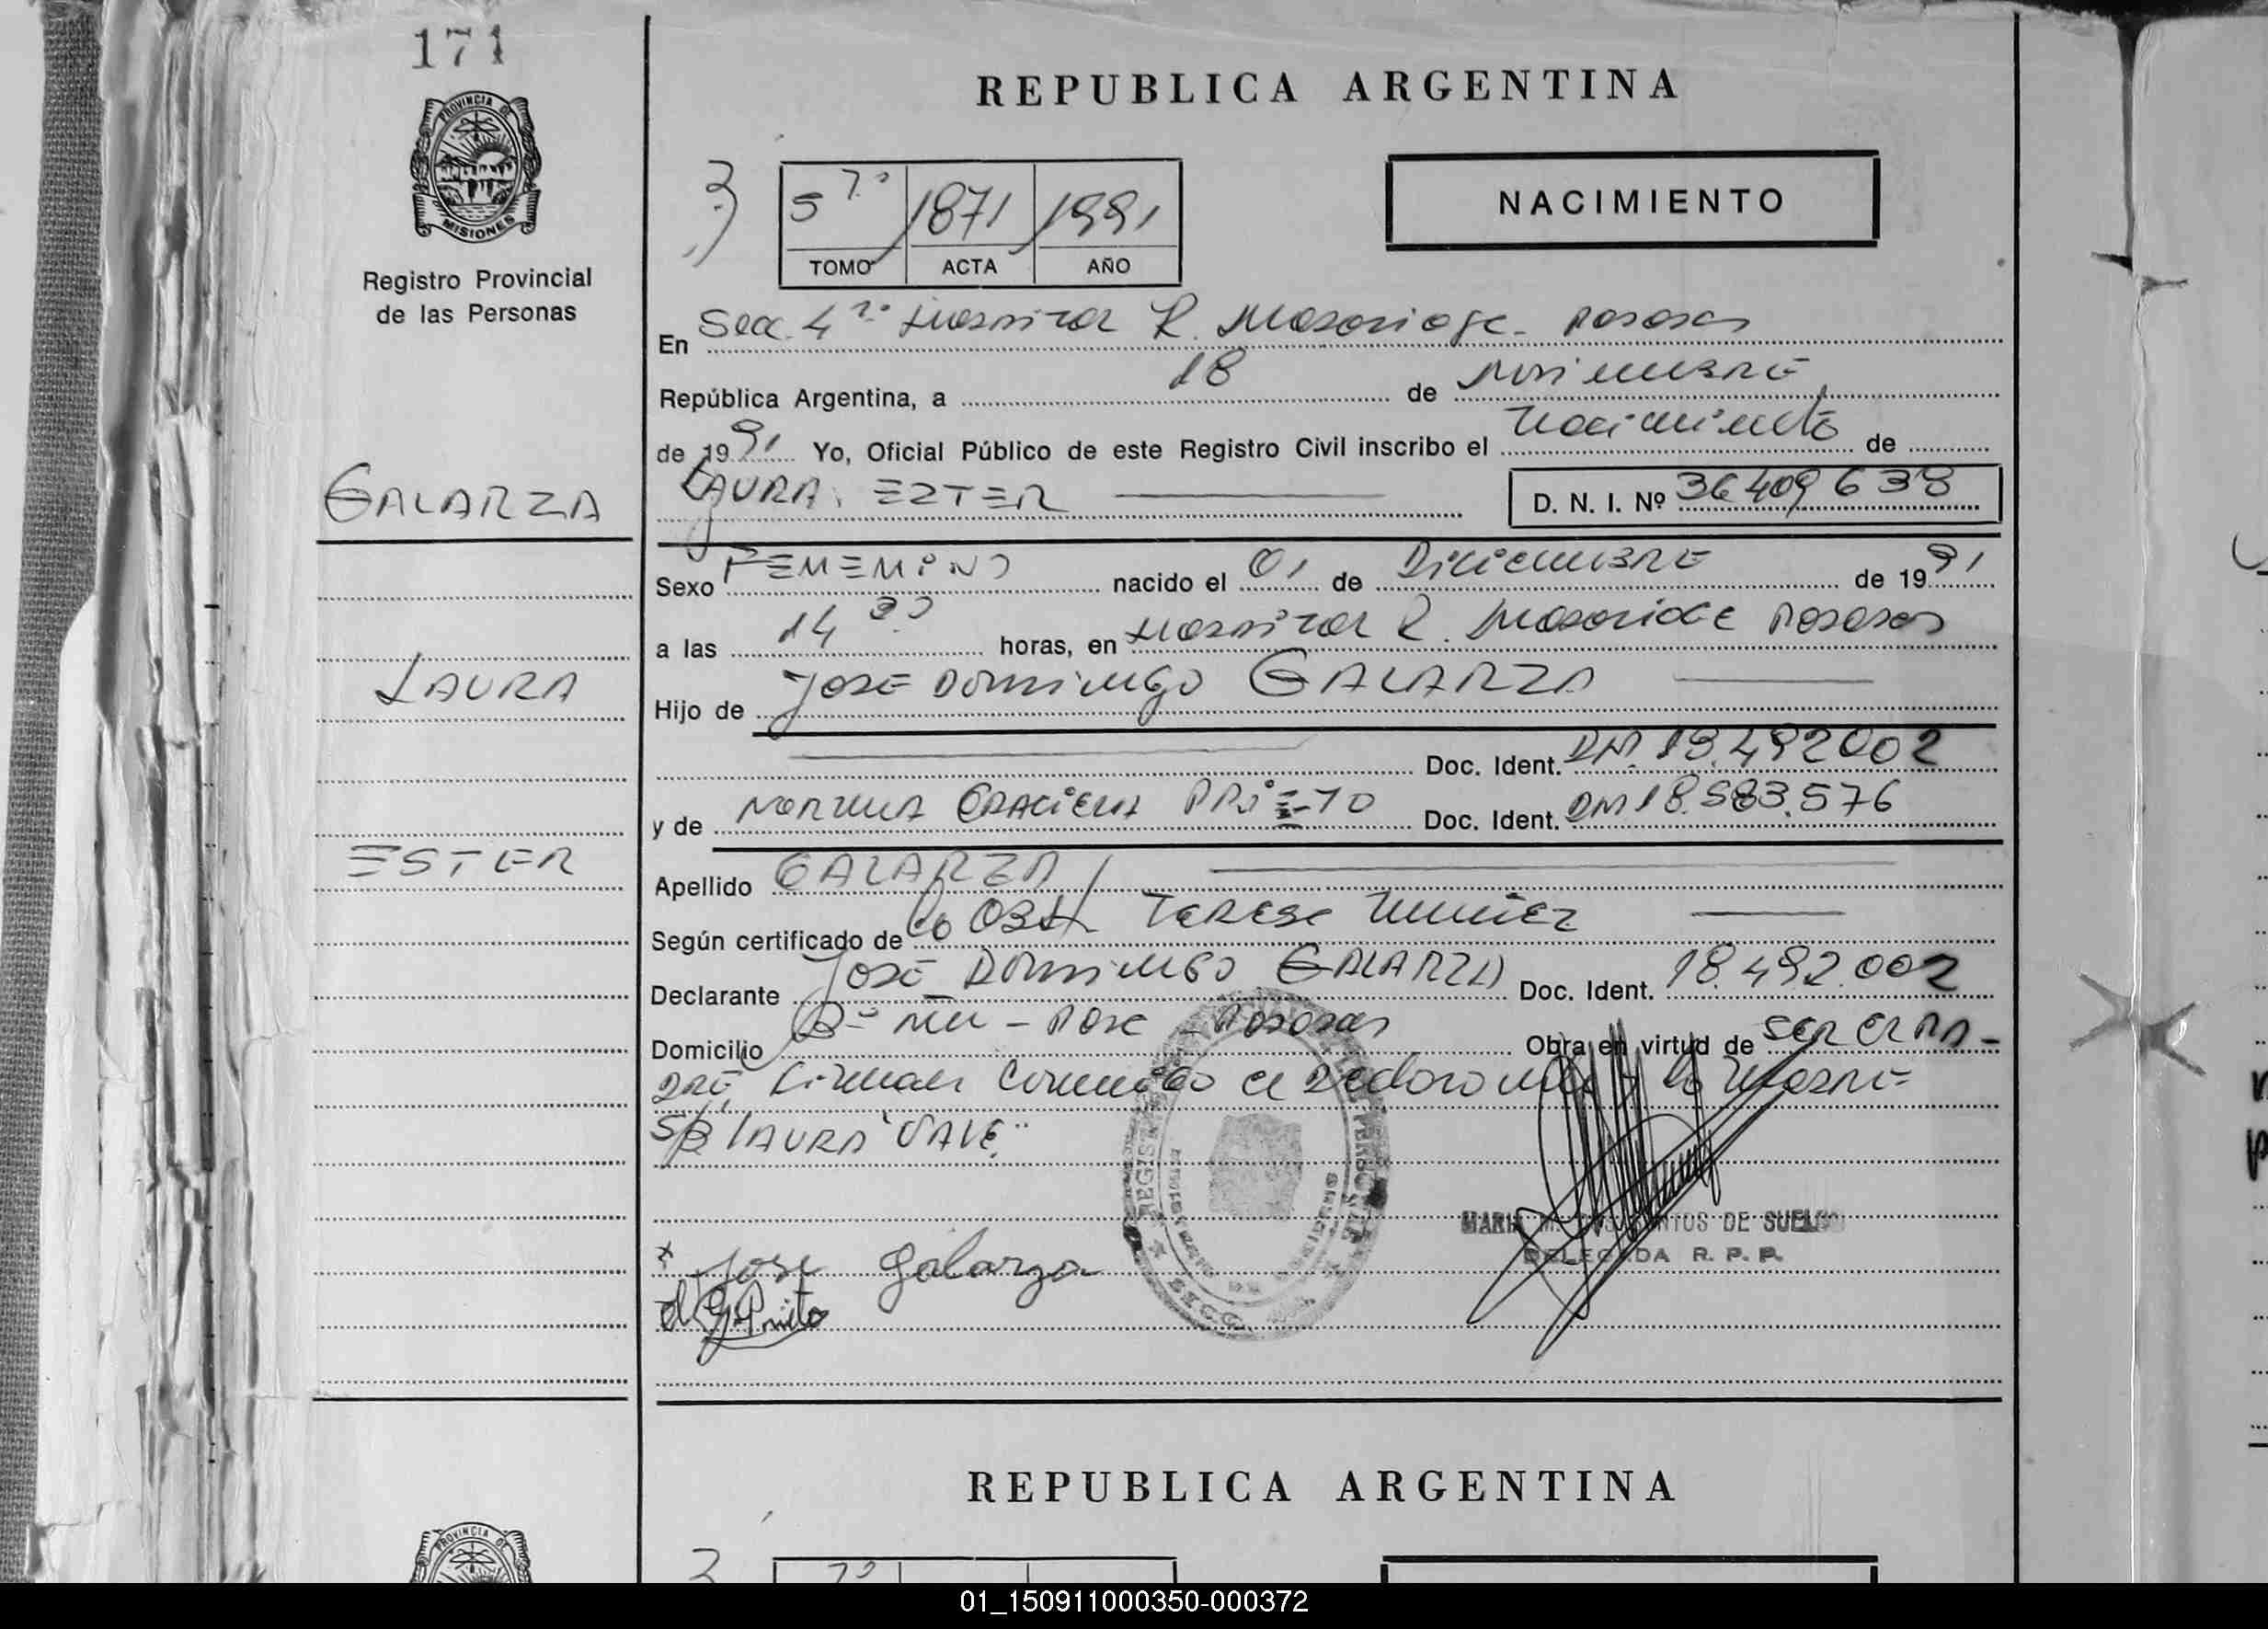 171
PROVINCIA DE
MISIONES
Registro Provincial
de las Personas
GALARZA
LAURA
ESTER
REPUBLICA ARGENTINA
3
5 7º 1871 1991
TOMO ACTA AÑO
NACIMIENTO
En Sec. 4ª Hospital R. Madariaga - Posadas
República Argentina, a 18 de
de 1991 Yo, Oficial Público de este Registro Civil inscribo el Nacimiento de
LAURA EZTER D. N. I. Nº 36409638
Sexo FEMEMINO nacido el 01 de Diciembre de 1991
a las 14 horas, en Hospital R. Madariaga Posadas
Hijo de JOSE DOMINGO GALARZA
Doc. Ident. 18.492002
y de NORMA GRACIELA PRIETO Doc. Ident. 18.583.576
Apellido GALARZA
Según certificado de la Obst. Teresa
Declarante JOSE DOMINGO GALARZA Doc. Ident. 18.492.002
Domicilio Posadas Obra en virtud de SER EL PA-
DRE, Firman conmigo el declarante y la Madre
S/B LAURA "VALE"
Jose Galarza
Prieto
MARIA DE SUELDO
DELEGADA R. P. P.
REPUBLICA ARGENTINA
PROVINCIA DE
3
7º
01_150911000350-000372